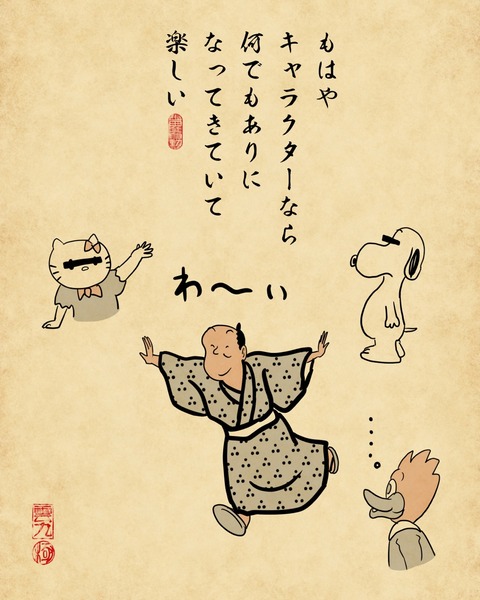 もはや
キャラクターなら
何でもありに
なってきていて
楽しい
わ〜い